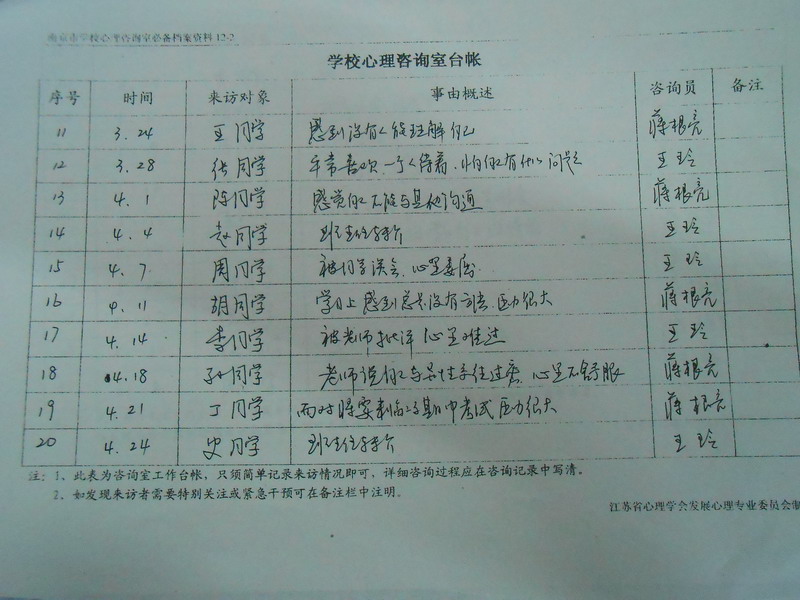 南京市学校心理咨询室必备档案资料 12-2
学校心理咨询室台帐
序号 时间 来访对象 事由概述 咨询员 备注
11 3.24 王同学 感到没有人能理解自己 蒋根亮
12 3.28 张同学 平常喜欢一个人待着,怕自己有什么问题 王玲
13 4.1 陈同学 感觉自己不能与其他沟通 蒋根亮
14 4.4 赵同学 王玲
15 4.7 周同学 被同学误会,心里委屈. 王玲
16 4.11 胡同学 学习上感到总是没有方法,压力很大 蒋根亮
17 4.14 李同学 被老师批评 心里难过 王玲
18 4.18 孙同学 老师说自己与异性交往过密,心里不舒服 蒋根亮
19 4.21 丁同学 面对将要来临的期中考试压力很大 蒋根亮
20 4.24 史同学 王玲
注:1、此表为咨询室工作台帐,只须简单记录来访情况即可,详细咨询过程应在咨询记录中写清。
2、如发现来访者需要特别关注或紧急干预可在备注栏中注明。
江苏省心理学会发展心理专业委员会制